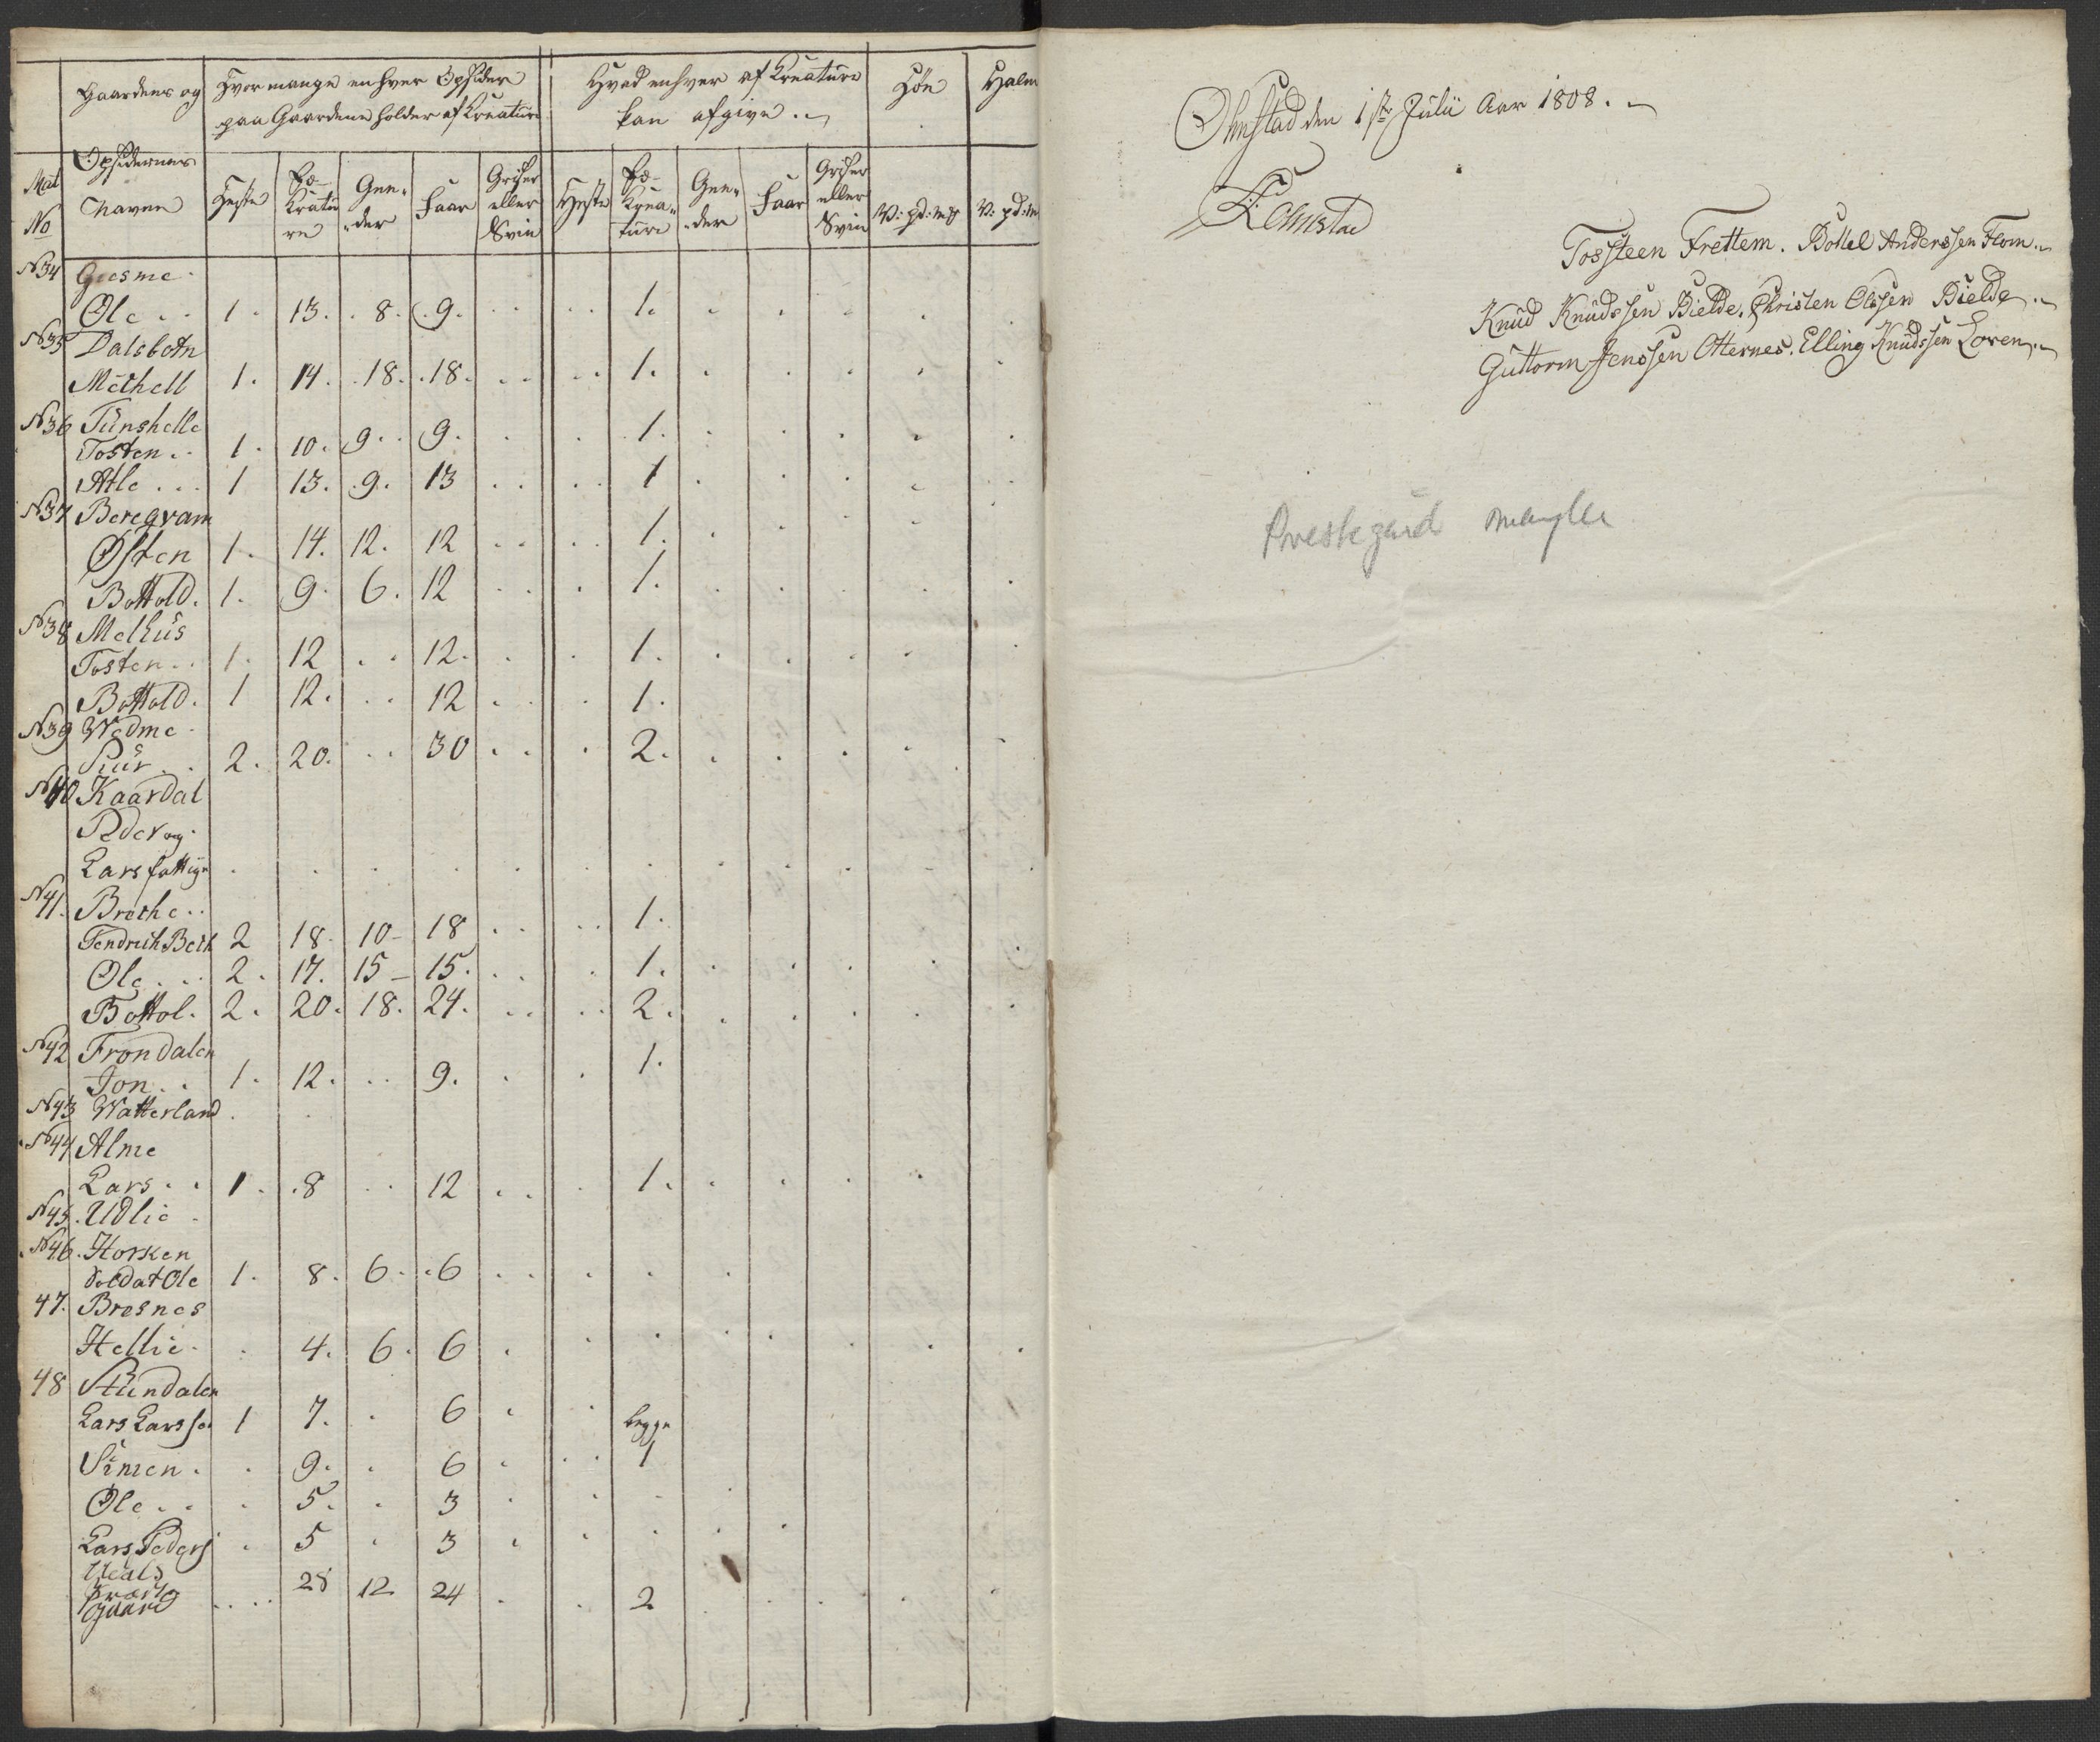 Gaardens og | Hvor mange enhver Opsidere paa Gaardene holder af Kreature | Hvad enhver af Kreature kan afgive | Höe | Halm
Mat No | Opsidernes Navne | Heste | Fæ-Kreature | Geeder | Faar | Griser eller Sviin | Heste | Fæ-Kreature | Geeder | Faar | Griser eller Sviin | V: pd: mk | V: pd: m
No 34 Geesme
Ole . . 1 . 13 . 8 . 9 . . . 1 .
No 35 Dalsbotn
Mithell 1 . 14 . 18 . 18 . . . 1 .
No 36 Tünshelle
Tosten . . 1 . 10 . 9 . . 9 . . 1 .
Atle . . . 1 13 . 9 . 13 . . 1
No 37 Bereqvam
Østen 1 . 14 . 12 . 12 . . 1 .
Bottold . 1 . 9 . 6 . 12 . . 1 .
No 38 Melhüs
Tosten . . 1 . 12 . . 12 . . 1 .
Bottold . 1 12 . . . 12 . . 1 .
No 39 Wedme
Siür . . 2 . 20 . . . 30 . . 2 .
No 40 Kaardal
Peder og
Lars fattige
No 41 . Brethe . .
Hendrich Beck 2 18 . 10 - 18 . . 1 .
Ole . . . 2 . 17 . 15 - 15 . . . 1 .
Bottol . 2 . 20 . 18 . 24 . . . 2 .
No 42 Frondalen
Jon . . 1 . 12 . . . 9 . . 1 .
No 43 Watterland
No 44 Alme
Lars . . 1 . 8 . . 12 . . 1 .
No 45 . Udlie
No 46 . Horsken
Soldat Ole 1 . 8 . 6 . 6 . .
47 . Bresnes
Hellie . . 4 . 6 . 6 .
48 Stündalen
Lars Larssen 1 7 . . 6 . . begge
Simen . . 9 . . 6 . . 1
Ole . . . 5 . . 3 .
Lars Peders . 5 . 3 .
Præstegaard . . . . 28 12 24 . . 2
Ohnstad den 1ste Julii Aar 1808 .
Ohnstad
Tossteen Frettem . Bottel Anderssen Flom .
Knüd Knüdssen Bielde . Christen Olssen Bielde .
Guttorm Jenssen Otternes . Elling Knüdssen Loven .
Prestegård mangler